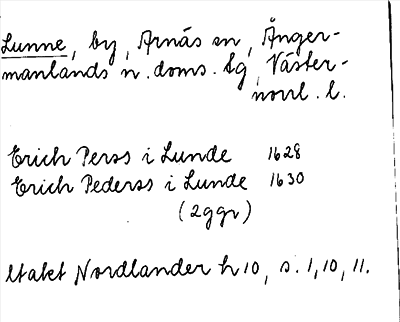 Lunne, by, Arnäs sn, Ånger-
manlands n. doms. sg, Väster-
norrl. l.
Erich Perss i Lunde 1628
Erich Pederss i Lunde 1630
(2ggr)
Utakt Nordlander h 10, s. 1, 10, 11.